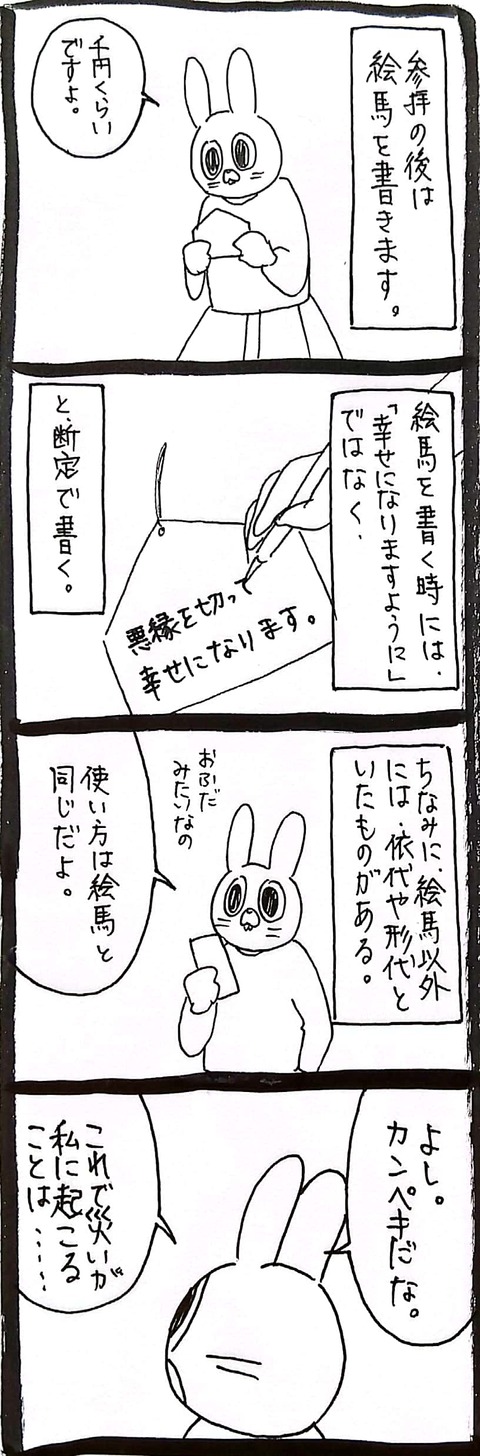 参拝の後は
絵馬を書きます。
千円くらい
ですよ。
絵馬を書く時には、
「幸せになりますように」
ではなく、
悪縁を切って
幸せになります。
と、断定で書く。
ちなみに、絵馬以外
には、依代や形代と
いたものがある。
おふだ
みたいなの
使い方は絵馬と
同じだよ。
よし。
カンペキだな。
これで災いが
私に起こる
ことは……